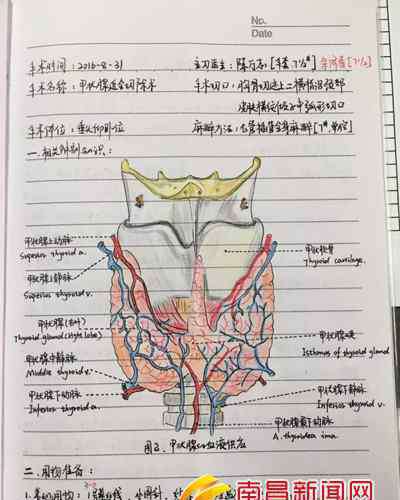 No.
Date
手术时间：2016-8-31 主刀医生：陈万志 [手套 7½#]
手术名称：甲状腺近全切除术 手术切口：胸骨切迹上二横指沿颈部
皮肤横纹做 弧形切口
手术体位：垂头仰卧位 麻醉方法：气管插管全身麻醉
一、相关解剖知识：
甲状腺上动脉
Superior thyroid a.
甲状腺上静脉
Superior thyroid v.
甲状软骨
Thyroid cartilage.
甲状腺(右叶)
Thyroid gland (right lobe)
甲状腺峡
Isthmus of thyroid gland
甲状腺中静脉
Middle thyroid v.
甲状腺下动脉
Inferior thyroid a.
甲状腺下静脉
Inferior thyroid v.
甲状腺最下动脉
A. thyroidea ima.
图2. 甲状腺的血液供应
二、用物准备：
南昌新闻网